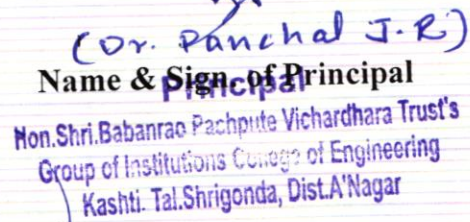 (Dr. Panchal J.R)
Name & Sign. of Principal
Principal
Hon.Shri.Babanrao Pachpute Vichardhara Trust's
Group of Institutions College of Engineering
Kashti. Tal.Shrigonda, Dist.A'Nagar